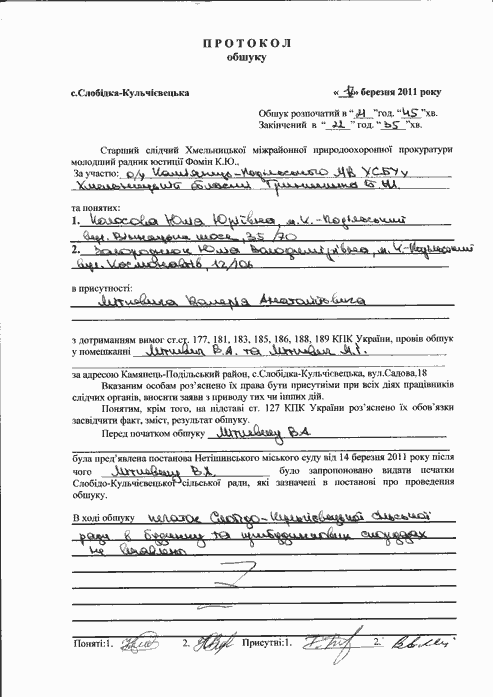 ПРОТОКОЛ
обшуку
с.Слобідка-Кульчієвецька « » березня 2011 року
Обшук розпочатий в “21”год.“45”хв.
Закінчений в “22”год.“35”хв.
Старший слідчий Хмельницької міжрайонної природоохоронної прокуратури
молодший радник юстиції Фомін К.Ю.,
За участю: о/у Камянець-Подільського МВ УСБУ у
Хмельницькій області
та понятих:
1. Колосова Юлія Юріївна, м.К.-Подільський
35/70
2. Загороднюк Юлія Володимирівна, м.К.-Подільський
вул.Космонавтів, 12/106
в присутності:
Валерія Анатолійовича
з дотриманням вимог ст.ст. 177, 181, 183, 185, 186, 188, 189 КПК України, провів обшук
у помешканні В.А. та
за адресою Камянець-Подільський район, с.Слобідка-Кульчієвецька, вул.Садова,18
Вказаним особам роз’яснено їх права бути присутніми при всіх діях працівників
слідчих органів, вносити заяви з приводу тих чи інших дій.
Понятим, крім того, на підставі ст. 127 КПК України роз’яснено їх обов’язки
засвідчити факт, зміст, результат обшуку.
Перед початком обшуку В.А.
була пред’явлена постанова Нетішинського міського суду від 14 березня 2011 року після
чого В.А. було запропоновано видати печатки
Слобідо-Кульчієвецької сільської ради, які зазначені в постанові про проведення
обшуку.
В ході обшуку печаток Слобідо-Кульчієвецької сільської
ради в будинку та прибудинкових спорудах
не виявлено
Поняті:1. 2. Присутні:1. 2.